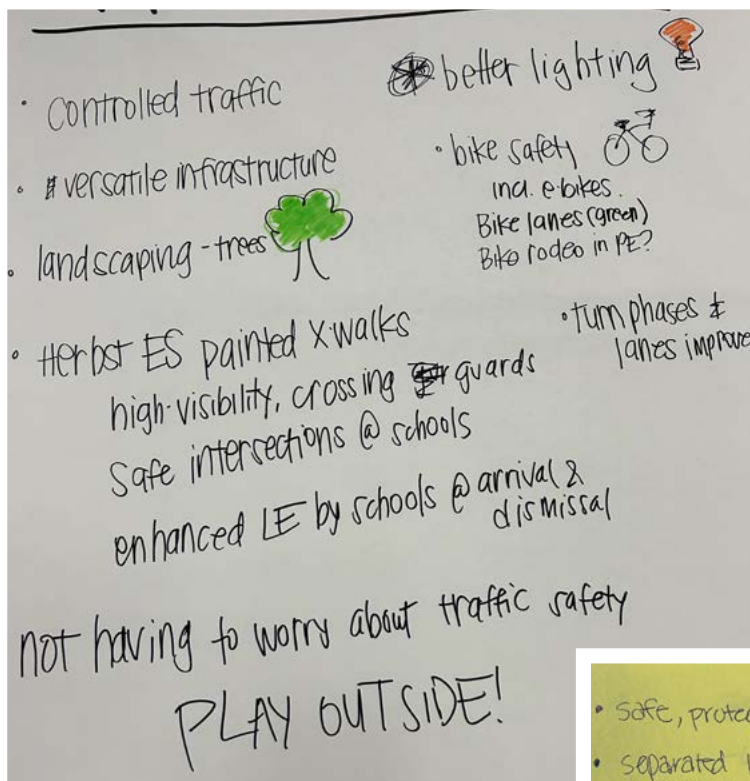 • controlled traffic
• versatile infrastructure
• landscaping - trees
• Herbst ES painted X walks
high-visibility, crossing guards
Safe intersections @ schools
enhanced LE by schools @ arrival &
dismissal
better lighting
• bike safety
incl. e-bikes.
Bike lanes (green)
Bike rodeo in PE?
• turn phases &
lanes improve
not having to worry about traffic safety
PLAY OUTSIDE!
• safe, protec
• separated